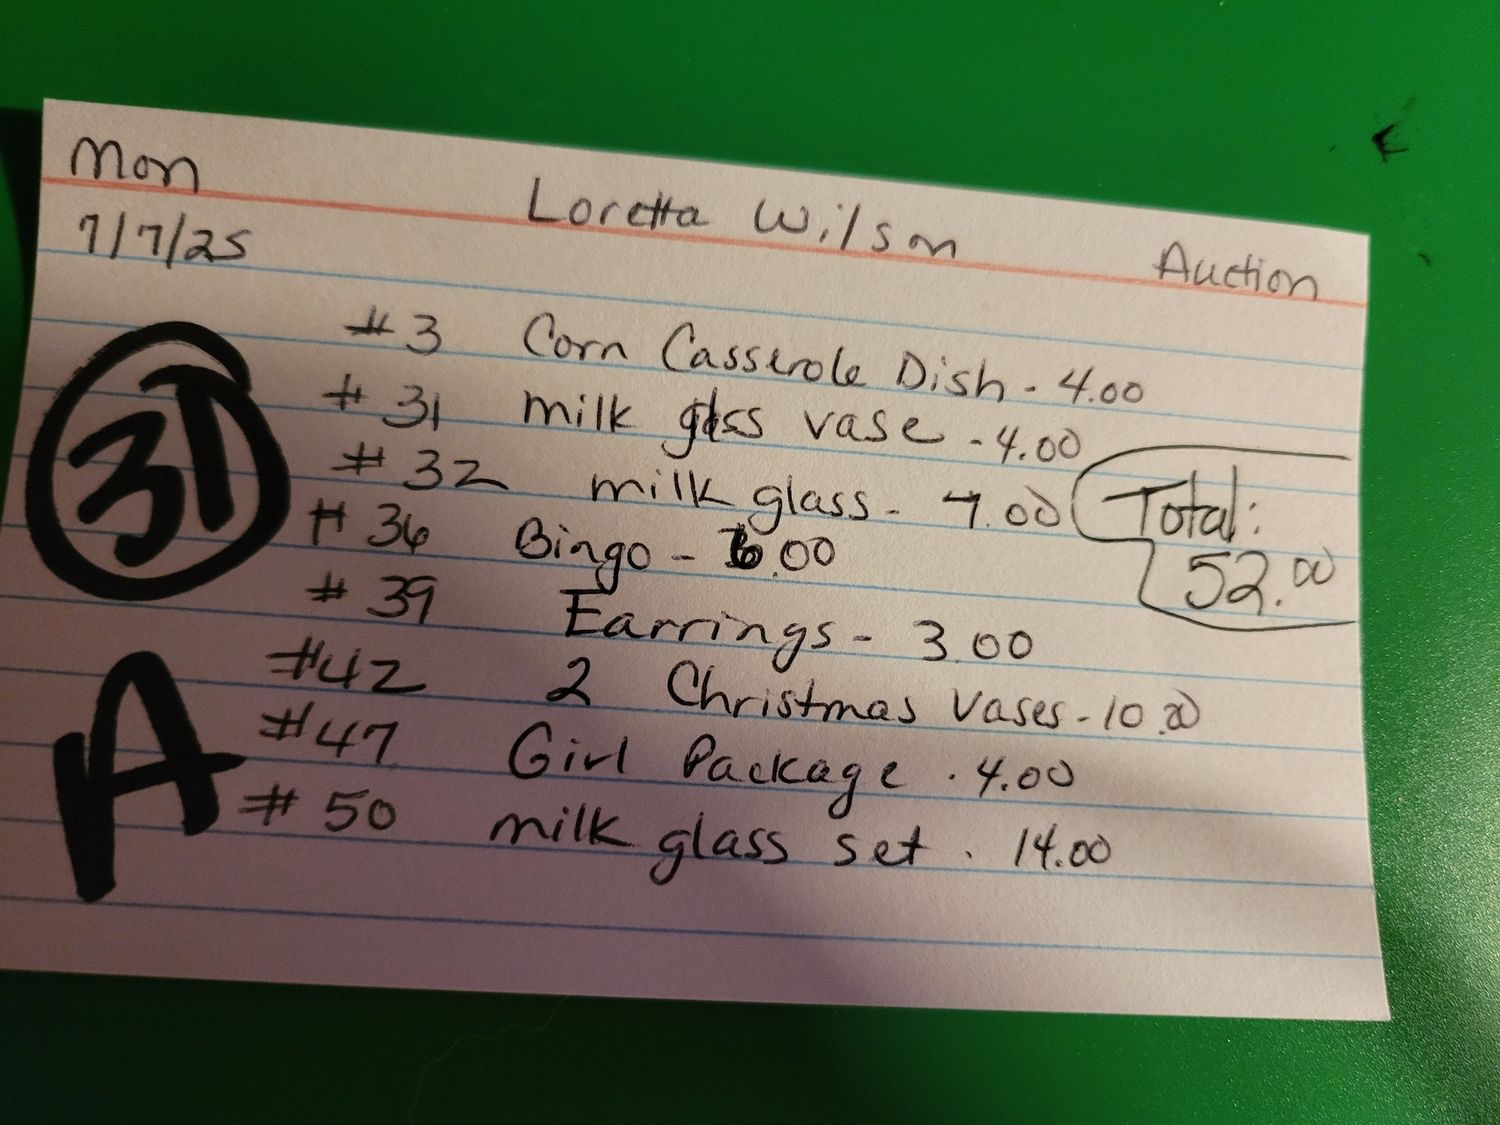 Mon
Loretta Wilson
Auction
7/7/25
#3 Corn Casserole Dish - 4.00
#31 milk glass vase - 4.00
#32 milk glass - 7.00
#36 Bingo - 6.00
#39 Earrings - 3.00
#42 2 Christmas Vases - 10.00
#47 Girl Package . 4.00
#50 milk glass set . 14.00
Total:
52.00
A